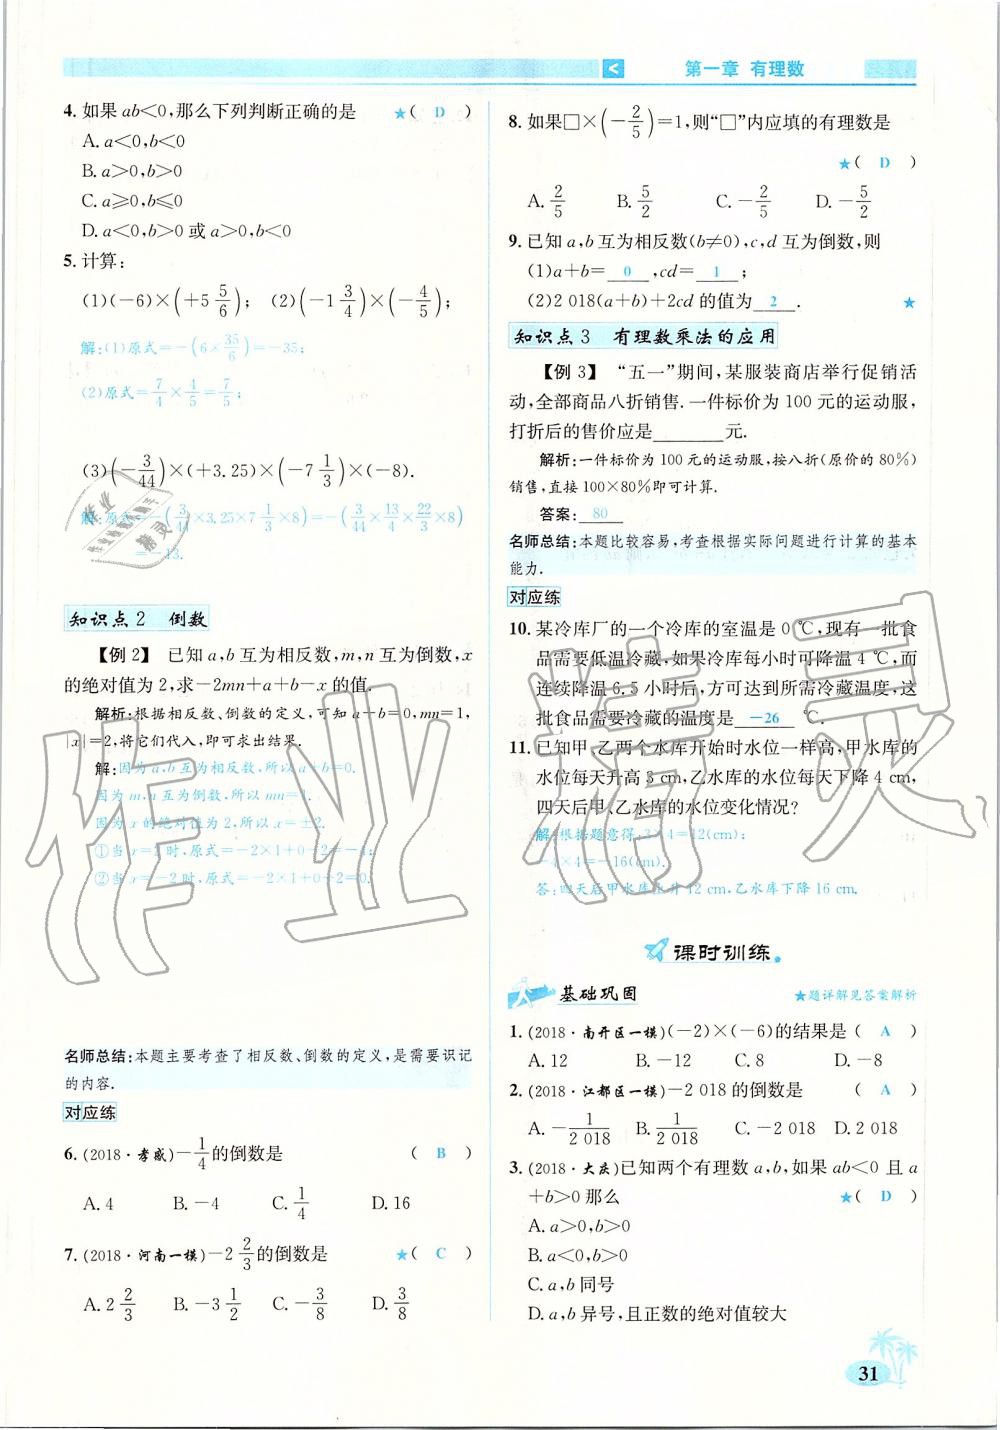 < 第一章 有理数
4.如果ab<0,那么下列判断正确的是 ★( D )
A.a<0,b<0
B.a>0,b>0
C.a≥0,b≤0
D.a<0,b>0或a>0,b<0
5.计算:
(1)(-6)×(+5 5/6); (2)(-1 3/4)×(-4/5);
解:(1)原式=-(6×35/6)=-35;
(2)原式=7/4×4/5=7/5;
(3)(-3/44)×(+3.25)×(-7 1/3)×(-8).
解:原式=-(3/44×3.25×7 1/3×8)=-(3/44×13/4×22/3×8)
=-13.
知识点2 倒数
【例2】 已知a,b互为相反数,m,n互为倒数,x
的绝对值为2,求-2mn+a+b-x的值.
解析:根据相反数、倒数的定义,可知a+b=0,mn=1,
|x|=2,将它们代入,即可求出结果.
解:因为a,b互为相反数,所以a+b=0.
因为m,n互为倒数,所以mn=1.
因为x的绝对值为2,所以x=±2.
①当x=2时,原式=-2×1+0-2=-4;
②当x=-2时,原式=-2×1+0+2=0.
名师总结:本题主要考查了相反数、倒数的定义,是需要识记
的内容.
对应练
6.(2018·孝感)-1/4的倒数是 ( B )
A.4 B.-4 C.1/4 D.16
7.(2018·河南一模)-2 2/3的倒数是 ★( C )
A.2 2/3 B.-3 1/2 C.-3/8 D.3/8
8.如果□×(-2/5)=1,则“□”内应填的有理数是
★( D )
A.2/5 B.5/2 C.-2/5 D.-5/2
9.已知a,b互为相反数(b≠0),c,d互为倒数,则
(1)a+b= 0 ,cd= 1 ;
(2)2 018(a+b)+2cd的值为 2 . ★
知识点3 有理数乘法的应用
【例3】 “五一”期间,某服装商店举行促销活
动,全部商品八折销售.一件标价为100元的运动服,
打折后的售价应是______元.
解析:一件标价为100元的运动服,按八折(原价的80%)
销售,直接100×80%即可计算.
答案: 80
名师总结:本题比较容易,考查根据实际问题进行计算的基本
能力.
对应练
10.某冷库厂的一个冷库的室温是0 ℃,现有一批食
品需要低温冷藏,如果冷库每小时可降温4 ℃,而
连续降温6.5小时后,方可达到所需冷藏温度,这
批食品需要冷藏的温度是 -26 ℃.
11.已知甲、乙两个水库开始时水位一样高,甲水库的
水位每天升高3 cm,乙水库的水位每天下降4 cm,
四天后甲、乙水库的水位变化情况?
解:根据题意得:3×4=12(cm);
-4×4=-16(cm).
答:四天后甲水库上升12 cm,乙水库下降16 cm.
课时训练
基础巩固 ★题详解见答案解析
1.(2018·南开区一模)(-2)×(-6)的结果是( A )
A.12 B.-12 C.8 D.-8
2.(2018·江都区一模)-2 018的倒数是 ( A )
A.-1/2 018 B.1/2 018 C.-2 018 D.2 018
3.(2018·大庆)已知两个有理数a,b,如果ab<0且a
+b>0那么 ★( D )
A.a>0,b>0
B.a<0,b>0
C.a,b同号
D.a,b异号,且正数的绝对值较大
31
作业精灵